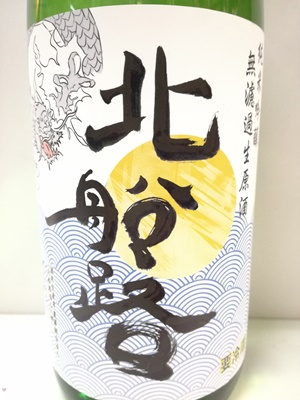 純米吟醸
無濾過生原酒
北船路
要冷